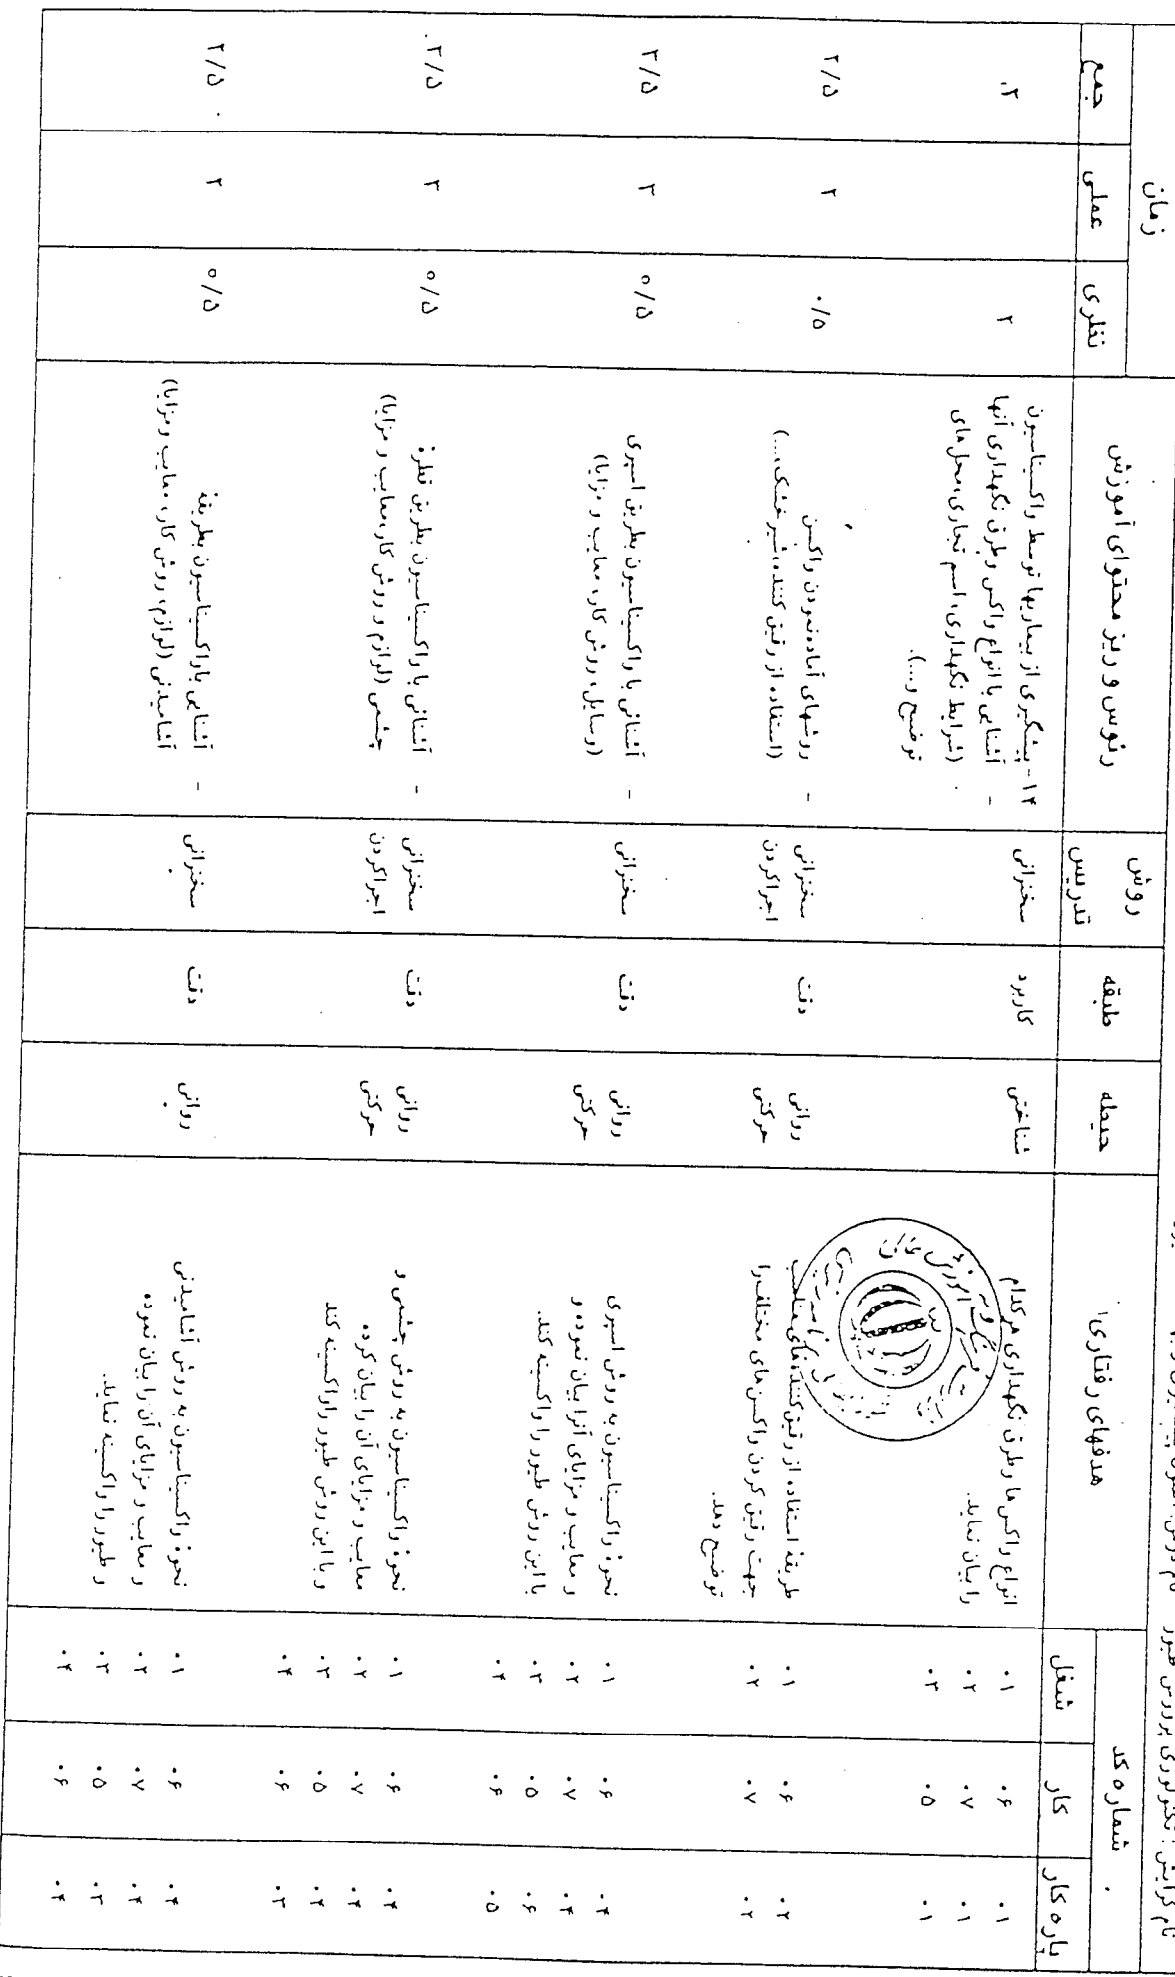 نام گرایش: تکنولوژی پرورش طیور
شماره کد
هدفهای رفتاری
حیطه
طبقه
روش تدریس
رئوس و ریز محتوای آموزش
زمان
پاره کار
کار
شغل
نظری
عملی
جمع
۰۱ ۰۶ ۰۱
۰۱ ۰۷ ۰۲
۰۱ ۰۵ ۰۳
انواع واکس ها و طرق نگهداری هرکدام
را بیان نماید.
شناختی
کاربرد
سخنرانی
۱۴- پیشگیری از بیماریها توسط واکسیناسیون
- آشنایی با انواع واکس و طرق نگهداری آنها
(شرایط نگهداری، اسم تجاری، محل های
توضیح و...).
۲
۲
۰۲ ۰۶ ۰۱
۰۲ ۰۷ ۰۲
طریقهٔ استفاده از رقیق کننده های مناسب
جهت رقیق کردن واکسن های مختلف را
توضیح دهد.
روانی
حرکتی
دقت
سخنرانی
اجراکردن
- روشهای آماده نمودن واکسن
(استفاده از رقیق کننده، شیر خشک،...)
۰/۵
۲
۲/۵
۰۴ ۰۶ ۰۱
۰۴ ۰۷ ۰۲
۰۶ ۰۵ ۰۳
۰۵ ۰۶ ۰۴
نحوهٔ واکسیناسیون به روش اسپری
و معایب و مزایای آنرا بیان نموده و
با این روش طیور را واکسینه کند.
روانی
حرکتی
دقت
سخنرانی
- آشنائی با واکسیناسیون بطریق اسپری
(وسایل، روش کار، معایب و مزایا)
۰/۵
۳
۳/۵
۰۴ ۰۶ ۰۱
۰۴ ۰۷ ۰۲
۰۴ ۰۵ ۰۳
۰۳ ۰۶ ۰۴
نحوهٔ واکسیناسیون به روش چشمی و
معایب و مزایای آن را بیان کرده
و با این روش طیور را واکسینه کند
روانی
حرکتی
دقت
سخنرانی
اجراکردن
- آشنائی با واکسیناسیون بطریق قطرهٔ
چشمی (لوازم و روش کار، معایب و مزایا)
۰/۵
۳
۳/۵
۰۴ ۰۶ ۰۱
۰۴ ۰۷ ۰۲
۰۳ ۰۵ ۰۳
۰۴ ۰۶ ۰۴
نحوهٔ واکسیناسیون به روش آشامیدنی
و معایب و مزایای آن را بیان نموده
و طیور را واکسینه نماید.
روانی
دقت
سخنرانی
- آشنایی با واکسیناسیون بطریقهٔ
آشامیدنی (لوازم، روش کار، معایب و مزایا)
۰/۵
۲
۲/۵